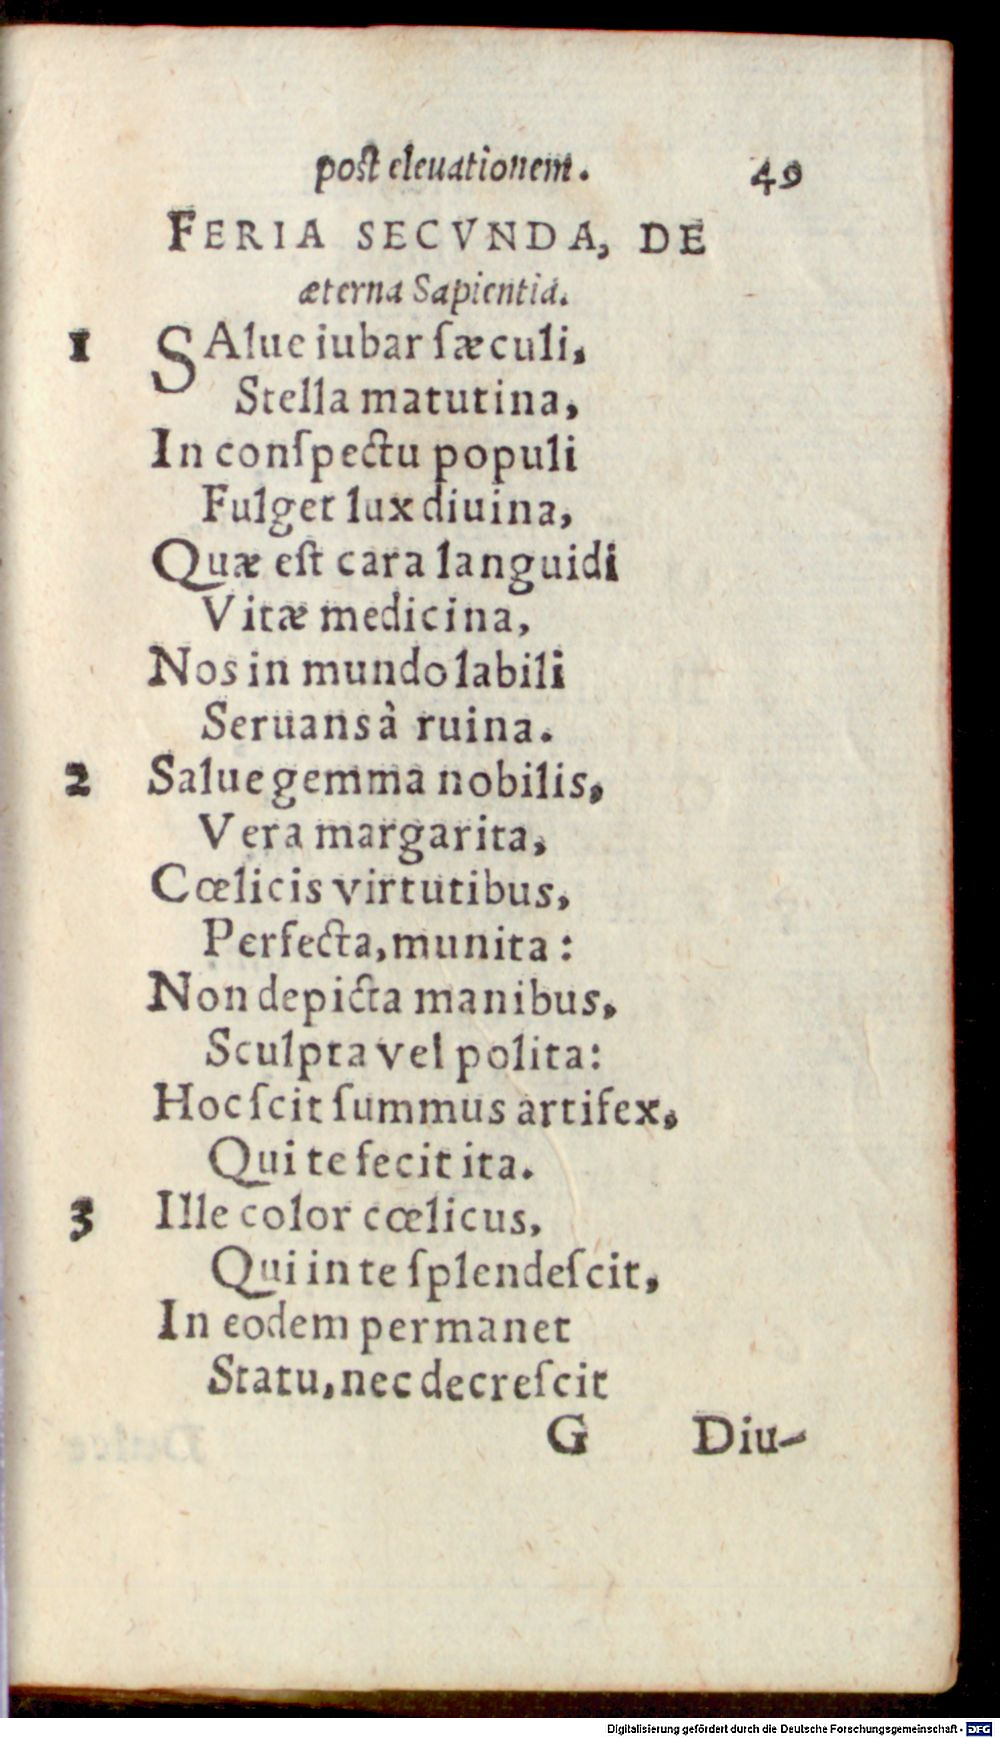 post eleuationem. 49
FERIA SECVNDA, DE
æterna Sapientia.
1 SAlue iubar ſæculi,
Stella matutina,
In conſpectu populi
Fulget lux diuina,
Quæ eſt cara languidi
Vitæ medicina,
Nos in mundo labili
Seruans à ruina.
2 Salue gemma nobilis,
Vera margarita,
Cœlicis virtutibus,
Perfecta, munita:
Non depicta manibus,
Sculpta vel polita:
Hoc ſcit ſummus artifex,
Qui te fecit ita.
3 Ille color cœlicus,
Qui in te ſplendeſcit,
In eodem permanet
Statu, nec decreſcit
G Diu-
Digitalisierung gefördert durch die Deutsche Forschungsgemeinschaft - DFG